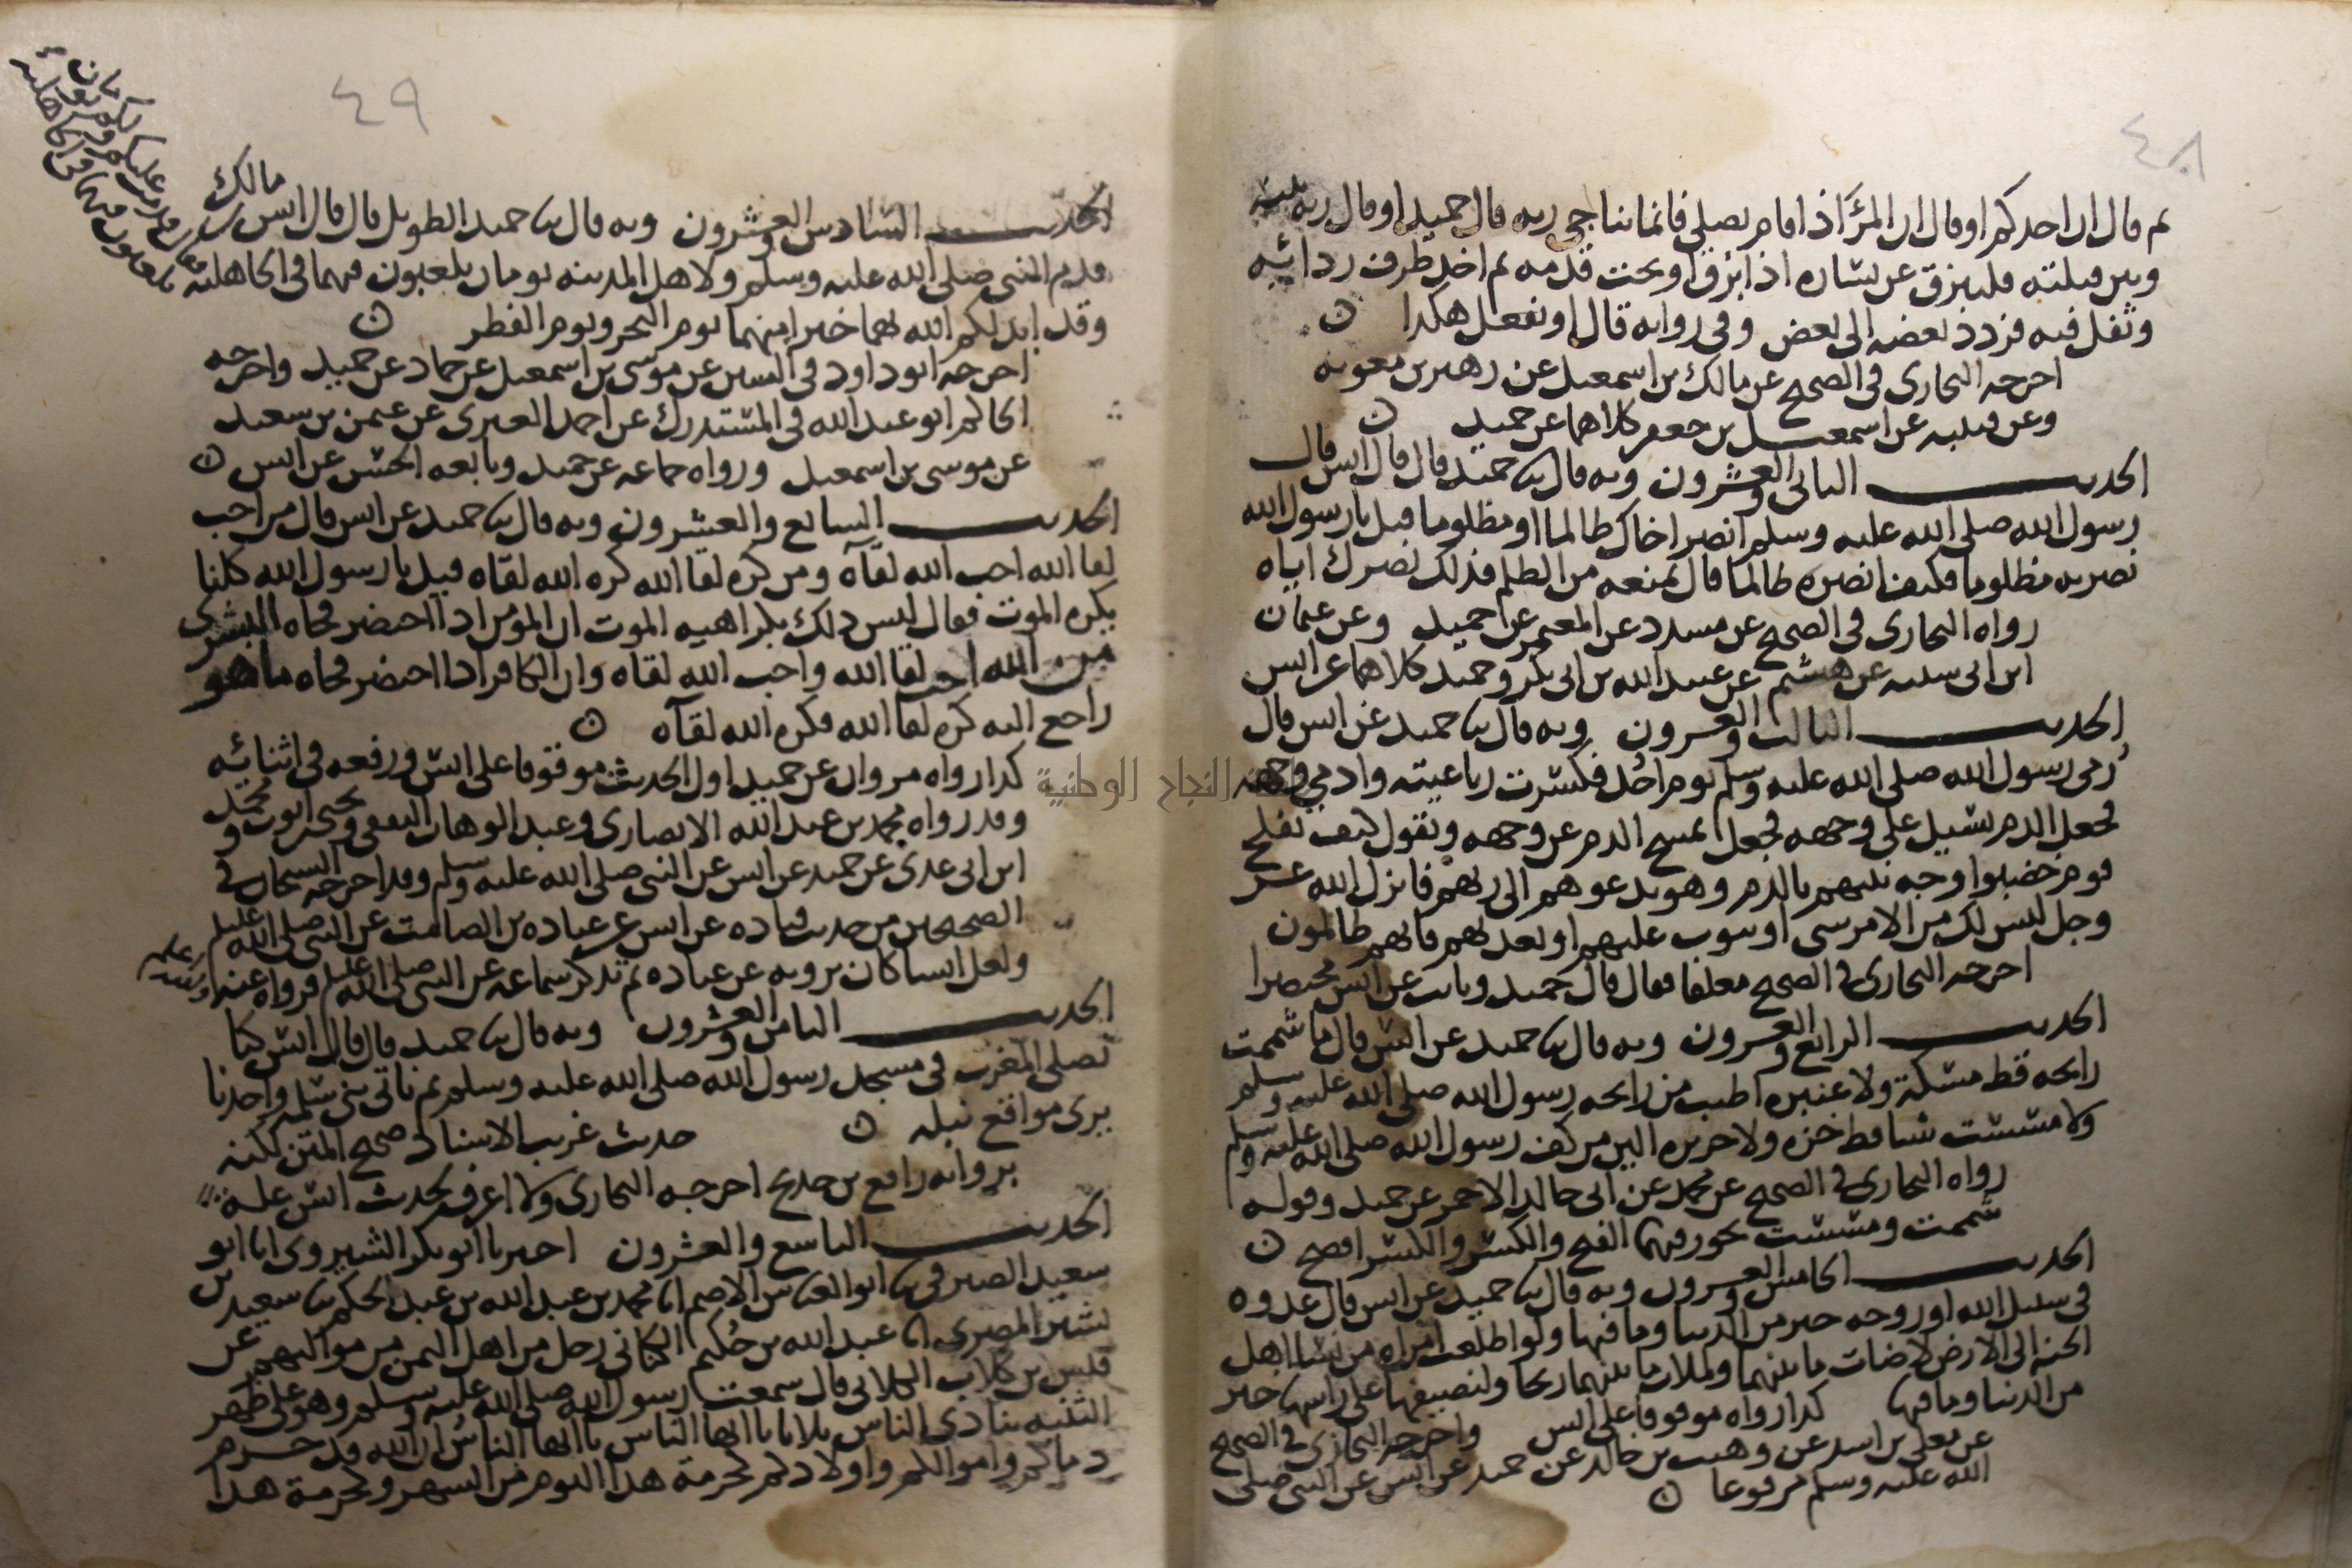 ٤٨
ثم قال ان احدكم او قال ان المرَٔ اذا قام يصلي فانما يناجي ربه قال حميد او قال ربه بينه
وبين قبلته فليبزق عن يساره اذا بزق او تحت قدمه ثم اخذ طرف ردائه
وتفل فيه فردد بعضه الى بعض وفي روايه قال او يفعل هكذا ن
اخرجه البخاري في الصحيح عن مالك بن اسمعيل عن زهير بن معويه
وعن قتيبه عن اسمعيل بن جعفر كلاهما عن حميد ن
الحديث الثاني والعشرون وبه قال ثنا حميد قال قال انس قال
رسول الله صلى الله عليه وسلم انصر اخاك ظالما او مظلوما قيل يا رسول الله
نصرته مظلوما فكيف انصره ظالما قال تمنعه من الظلم فذلك نصرك اياه
رواه البخاري في الصحيح عن مسدد عن المعتمر عن حميد وعن عثمان
ابن ابي شيبه عن هشيم عن عبيد الله بن ابي بكر وحميد كلاهما عن انس
الحديث الثالث والعشرون وبه قال ثنا حميد عن انس قال
رُمي رسول الله صلى الله عليه وسلم يوم احُد فكسرت رباعيته وادمي وجهه
فجعل الدم يسيل على وجهه فجعل يمسح الدم عن وجهه ويقول كيف يفلح
قوم خضبوا وجه نبيهم بالدم وهو يدعوهم الى ربهم فانزل الله عز
وجل ليس لك من الامر شي او يتوب عليهم او يعذبهم فانهم ظالمون
اخرجه البخاري في الصحيح معلقا فقال قال حميد وثابت عن انس مختصرا
الحديث الرابع والعشرون وبه قال ثنا حميد عن انس قال ما شممت
رايحه قط مسكة ولا عنبره اطيب من رايحه رسول الله صلى الله عليه وسلم
ولا مسست شيا قط خزه ولا حريره الين من كف رسول الله صلى الله عليه وسلم
رواه البخاري في الصحيح عن محمد عن ابي خالد الاحمر عن حميد وقوله
شممت ومسست يجوز فيهما الفتح والكسر والكسر افصح ن
الحديث الخامس والعشرون وبه قال ثنا حميد عن انس قال غدوه
في سبيل الله او روحه خير من الدنيا وما فيها ولو اطلعت امراه من نسا اهل
الجنه الى الارض لاضات ما بينهما ولملات ما بينهما ريحا ولنصيفها على راسها خير
من الدنيا وما فيها كذا رواه موقوفا على انس واخرجه البخاري في الصحيح
عن معلى بن اسد عن وهيب بن خالد عن حميد عن انس عن النبي صلى
الله عليه وسلم مرفوعا ن
٤٩
مالك
الحديث السادس والعشرون وبه قال ثنا حميد الطويل قال قال انس بن
قدم النبي صلى الله عليه وسلم ولاهل المدينه يومان يلعبون فيهما في الجاهليه
فقال قدمت عليكم ولكم يومان
تلعبون فيهما في الجاهليه
وقد ابدلكم الله بهما خيرا منهما يوم النحر ويوم الفطر ن
اخرجه ابو داود في السنن عن موسى بن اسمعيل عن حماد عن حميد واخرجه
الحاكم ابو عبد الله في المستدرك عن احمد العنبري عن عثمن بن سعيد
عن موسى بن اسمعيل ورواه جماعه عن حميد وتابعه الحسن عن انس ن
الحديث السابع والعشرون وبه قال ثنا حميد عن انس قال من احب
لقا الله احب الله لقاه ومن كره لقا الله كره الله لقاه قيل يا رسول الله كلنا
يكره الموت فقال ليس ذلك بكراهيه الموت ان المومن اذا احتضر فجاه البشرى
من الله احب لقا الله واحب الله لقاه وان الكافر اذا احتضر فجاه ما هو
راجع اليه كره لقا الله فكره الله لقاه ن
كذا رواه مروان عن حميد اول الحديث موقوفا على انس ورفعه في اثنائه
وقد رواه محمد بن عبد الله الانصاري وعبد الوهاب الثقفي ويحيى بن ايوب ومحمد
ابن ابي عدي عن حميد عن انس عن النبي صلى الله عليه وسلم وقد اخرجه الشيخان في
الصحيحين من حديث قتاده عن انس عن عباده بن الصامت عن النبي صلى الله عليه وسلم
ولعل انسا كان يرويه عن عباده ثم تذكر سماعه عن النبي صلى الله عليه وسلم فرواه عنه
الحديث الثامن والعشرون وبه قال ثنا حميد قال قال انس كنا
نصلي المغرب في مسجد رسول الله صلى الله عليه وسلم ثم ناتي بني سلمه واحدنا
يرى مواقع نبله ن حديث غريب الاسناد صحيح المتن لكنه
بروايه رافع بن خديج اخرجه البخاري ولا اعرف لحديث انس عله
الحديث التاسع والعشرون اخبرنا ابو بكر الشيروي انا ابو
سعيد الصيرفي ثنا ابو العباس الاصم انا محمد بن عبد الله بن عبد الحكم ثنا سعيد بن
بشير المصري انا عبد الله بن حُكيم الكناني رجل من اهل اليمن من مواليهم عن
قيس بن كلاب الكلابي قال سمعت رسول الله صلى الله عليه وسلم وهو على ظهر
الثنيه ينادي الناس ثلاثا يا ايها الناس يا ايها الناس ان الله قد حرم
دماكم واموالكم واولادكم كحرمة هذا اليوم من الشهر وكحرمة هذا
جامعة النجاح الوطنية